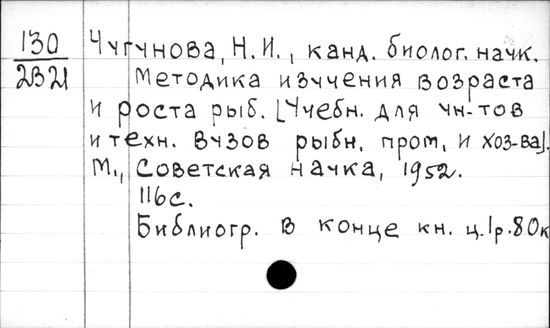 130
2321
Чугунова, Н.И., канд. биолог. наук.
Методика изучения возраста
и роста рыб. [Учебн. для ун-тов
и техн. вузов рыбн. пром. и хоз-ва].
М., Советская наука, 1952.
116с.
Библиогр. в конце кн. ц.1р.80к